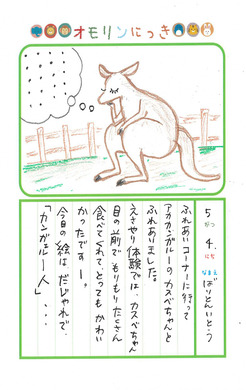 オモリンにっき
5がつ4.にち
なまえ ばりとんいとう
ふれあいコーナーに行って
アカカンガルーのカスベちゃんと
ふれあいました。
えさやり体験では カスベちゃん
目の前でもりもりたくさん
食べてくれて、とってもかわい
かったですー。
今日の絵は だじゃれで、
「カンガルー人」...